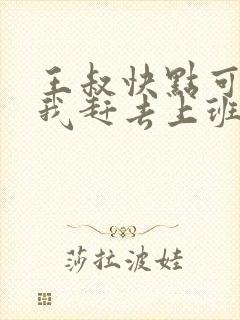 王叔快點可
我赶去上班
莎拉波娃